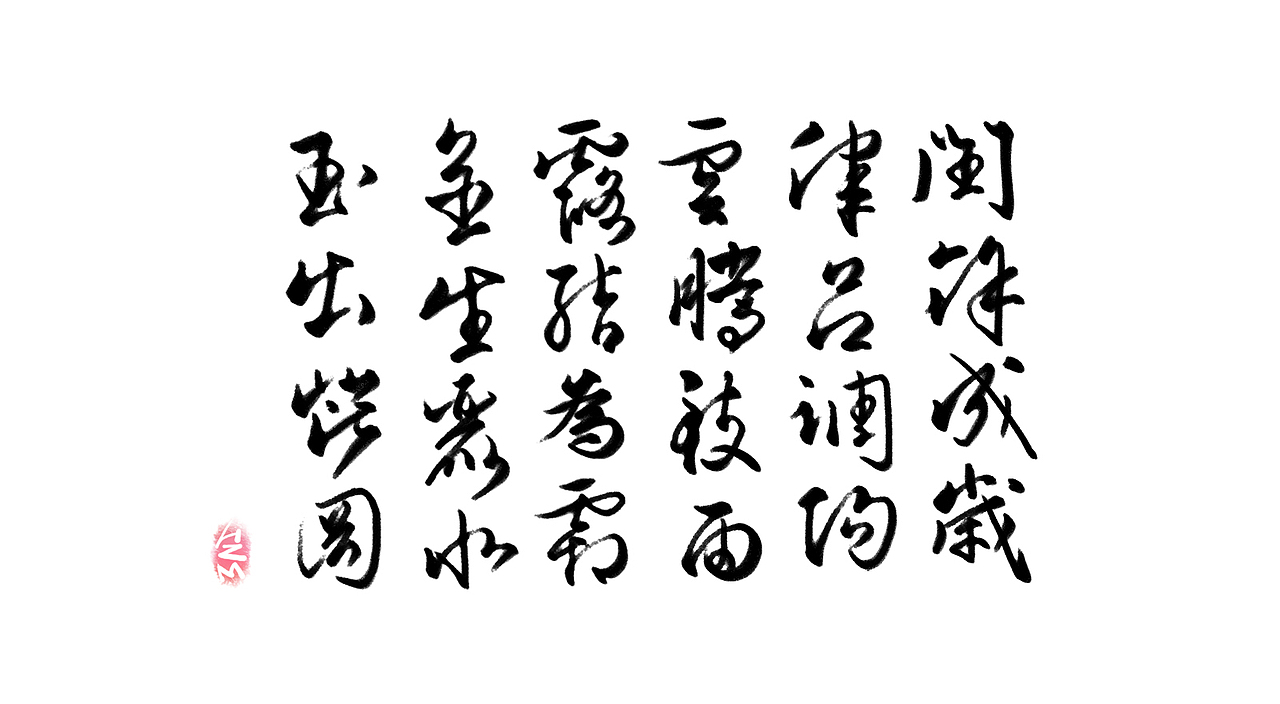 閏餘成歲
律呂調陽
雲騰致雨
露結為霜
金生麗水
玉出崑岡